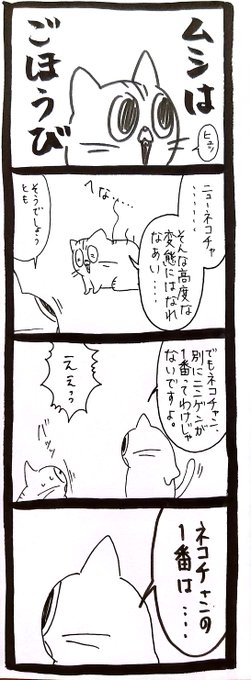 ムシは
ごほうび
ヒュッ
ニューネコチャ
‥‥‥‥
そんな高度な
変態にはなれ
なあい‥‥
へな‥‥
そうでしょう
とも
でもネコチャン、
別にニンゲンが
1番ってわけじゃ
ないですよ。
ええっ
バッ
ネコチャンの
1番は‥‥